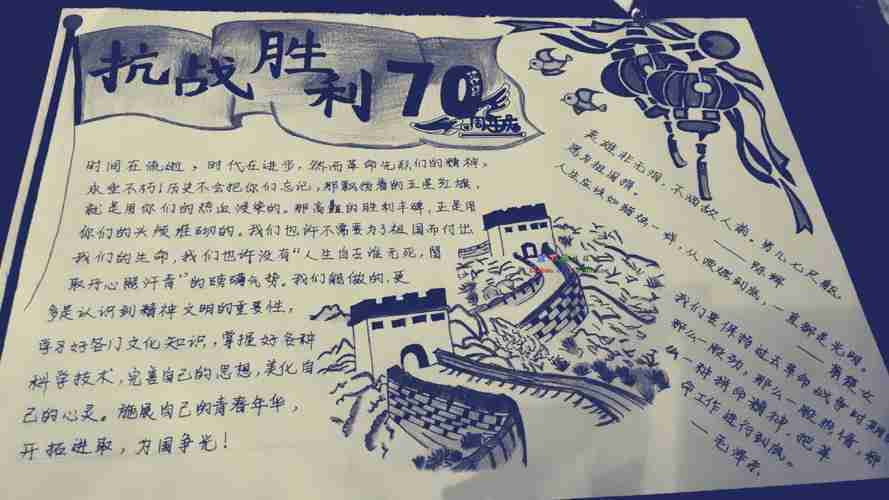 抗战胜利70
周年庆
时间在流逝，时代在进步，然而革命先烈们的精神，
永垂不朽！历史不会把你们忘记，那飘扬着的五星红旗，
就是用你们的热血浸染的。那高矗的胜利丰碑，正是用
你们的头颅堆砌的。我们也许不需要为了祖国而付出
我们的生命，我们也许没有“人生自古谁无死，留
取丹心照汗青”的磅礴气势。我们能做的，更
多是认识到精神文明的重要性，
学习好各门文化知识，掌握好各种
科学技术，完善自己的思想，美化自
己的心灵。施展自己的青春年华，
开拓进取，为国争光！
英雄非无泪，不洒敌人前。男儿七尺躯，
愿为祖国捐。
——陈辉
人生应该如蜡烛一样，从顶燃到底，一直都是光明。
——萧楚女
我们要保持过去革命战争时期的
那么一股劲，那么一股热情，那
么一种拼命精神，把革
命工作进行到底。
——毛泽东